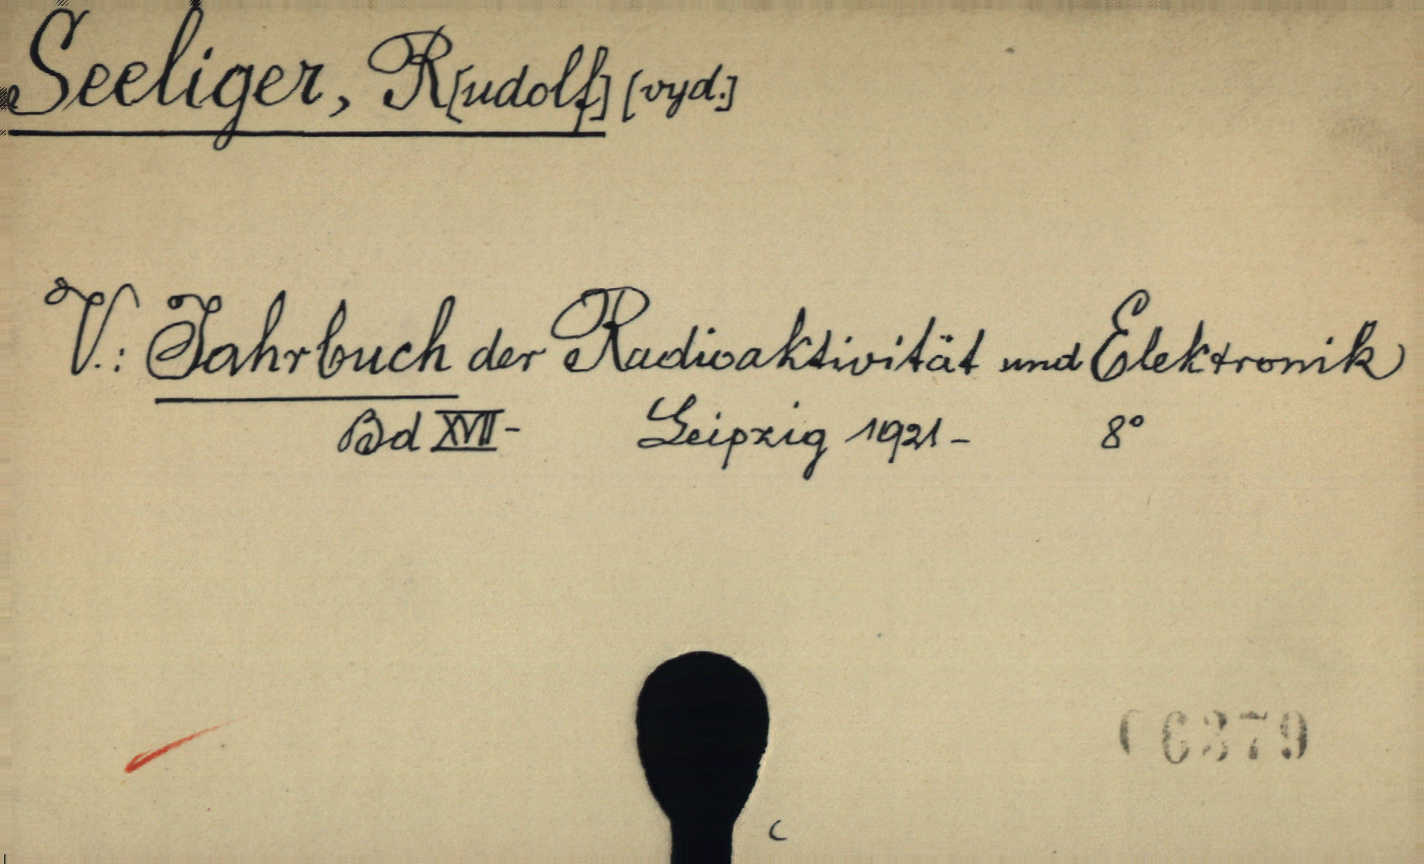 Seeliger, R[udolf] [vyd.]
V.: Jahrbuch der Radioaktivität und Elektronik
Bd XVII- Leipzig 1921- 8°